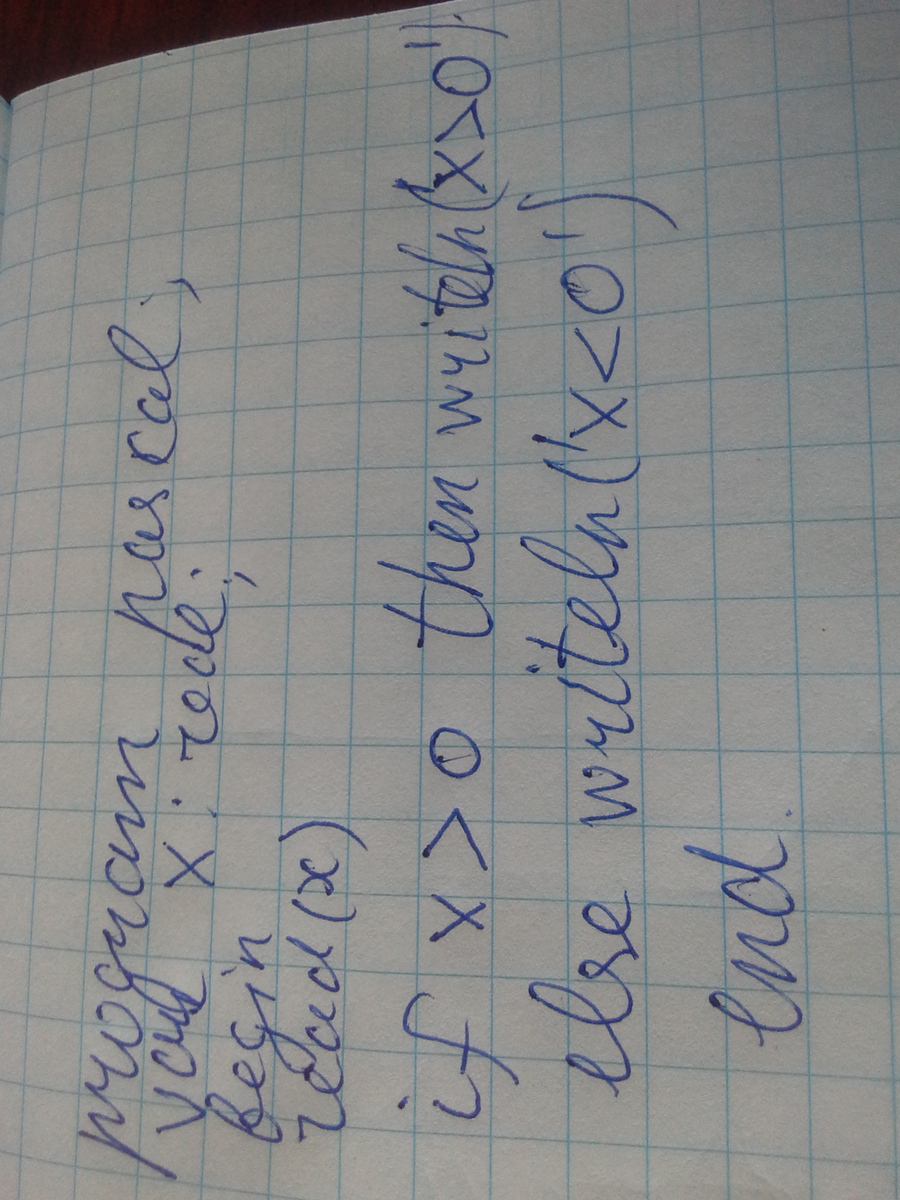 program pascal;
var x: reale;
begin
read(x)
if x>0 then writeln('x>0');
else writeln('x<0')
end.